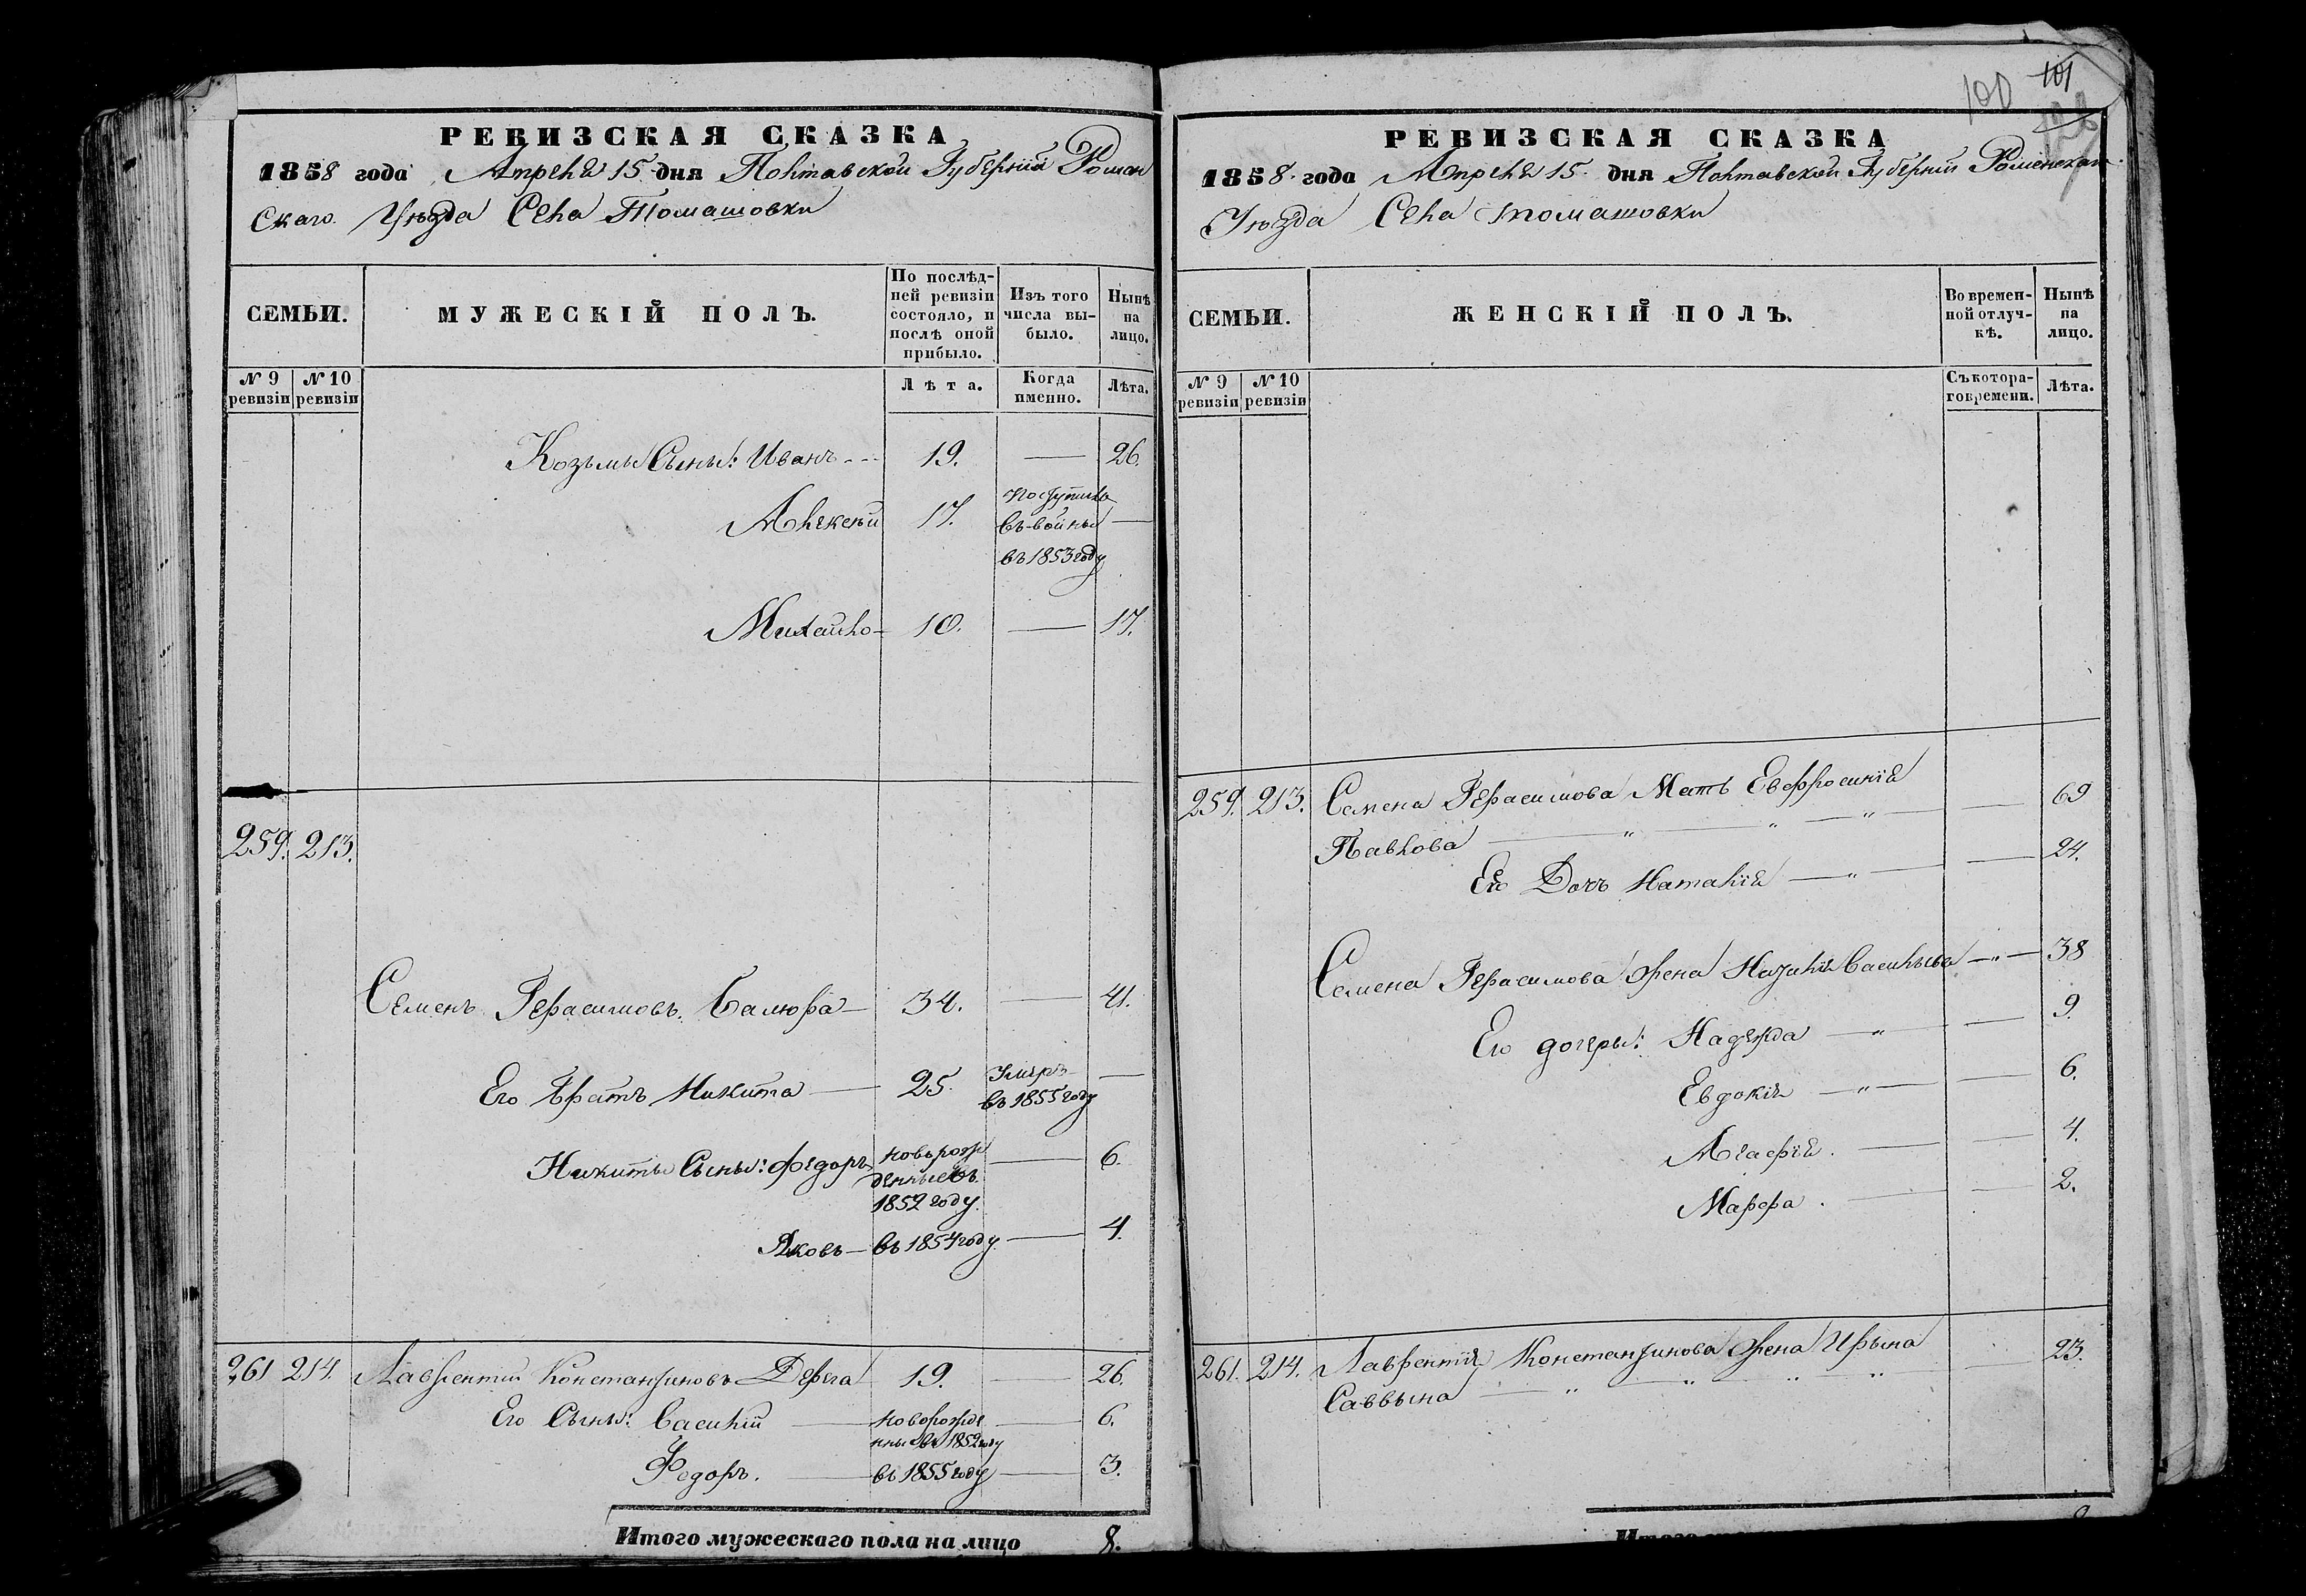 РЕВИЗСКАЯ СКАЗКА
1858 года Апреля 15 дня Полтавской Губерніи Ромен
скаго Уѣзда Села Томашовки
СЕМЬИ.
МУЖЕСКІЙ ПОЛЪ.
По послѣд-
ней ревизіи
состояло, и
послѣ оной
прибыло.
Изъ того
числа вы-
было.
Нынѣ
на
лицо.
№ 9
ревизіи
№ 10
ревизіи
Лѣта.
Когда
именно.
Лѣта.
Козьмы Сыны: Иванъ - - - 19. — 26.
Алексѣй 17. Поступилъ
въ войны —
въ 1853 году
Михайло - 10. — 17.
259. 213.
Семенъ Герасимовъ Балюра — 34. — 41.
Его Братъ Никита — 25. Умеръ —
въ 1855 году
Никиты Сыны: Федоръ новорож — 6.
денные въ
1852 году.
Яковъ — въ 1854 году — 4.
261 214. Лаврентий Константиновъ Дерга 19. — 26.
Его Сыны: Василій — новорожде — 6.
нные въ 1852 году
Федоръ. — въ 1855 году — 3.
Итого мужескаго пола на лицо 8.
100 101
РЕВИЗСКАЯ СКАЗКА
1858. года Апреля 15. дня Полтавской Губерніи Роменскаго
Уѣзда Села Томашовки
СЕМЬИ.
ЖЕНСКІЙ ПОЛЪ.
Во времен-
ной отлуч-
кѣ.
Нынѣ
на
лицо.
№ 9
ревизіи
№ 10
ревизіи
Съ котора-
го времени.
Лѣта.
259. 213. Семена Герасимова Мать Евфросинія
Павлова — " — " — " — — 69
Его Дочь Наталія — " — — 24.
Семена Герасимова Жена Наталія Васильева — " — 38
Его дочеры: Надежда — " — 9.
Евдокія — " — — 6.
Агафія. — — 4.
Марфа. — — 2.
261. 214. Лаврентія Константинова Жена Ирына
Саввына — " — " — " — " — 23.